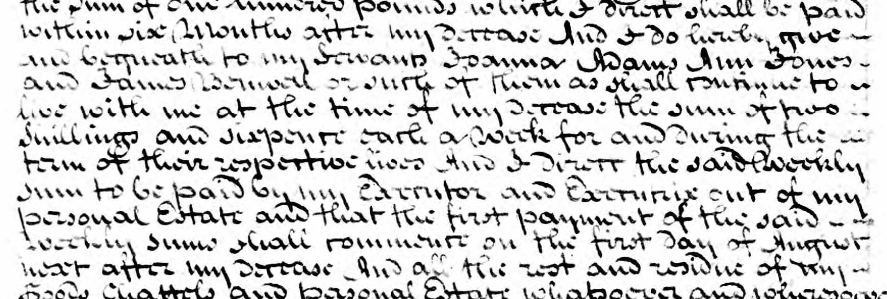 the sum of one hundred pounds which I direct shall be paid
within six Months after my decease And I do hereby give
and bequeath to my Servants Joanna Adams Ann Jones
and James or such of them as shall continue to
live with me at the time of my decease the sum of two
shillings and sixpence each a Week for and during the
term of their respective lives And I direct the said Weekly
sum to be paid by my Executor and Executrix out of my
personal Estate and that the first payment of the said
weekly sums shall commence on the first Day of August
next after my decease And all the rest and residue of my
Goods Chattels and personal Estate whatsoever and wheresoever